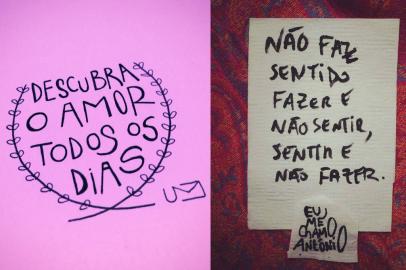 DESCUBRA
O AMOR
TODOS OS
DIAS
U
NÃO FAZ
SENTIDO
FAZER E
NÃO SENTIR,
SENTIR E
NÃO FAZER.
EU
ME
CHAMO
ANTÔNIO